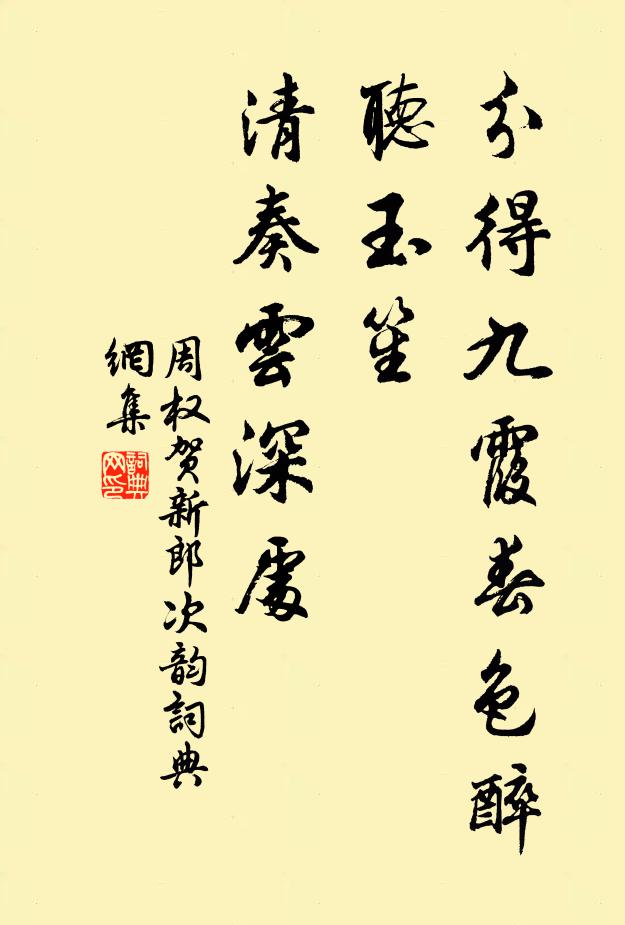 分得九霞春色醉
聽玉笙
清奏雲深處
周权贺新郎次韵詞典
網集
詞典网印